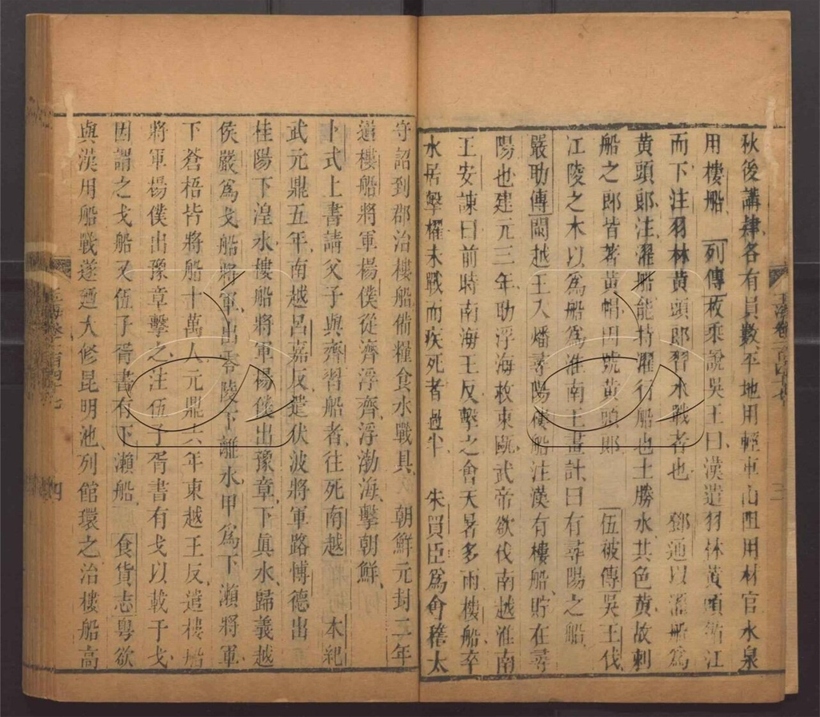 秋後講肄各有員數平地用輕車山阻用材官水泉
用樓船　列傳枚乘說吳王曰漢遣羽林黃頭循江
而下注羽林黃頭郎習水戰者也　鄧通以濯船為
黃頭郎注濯船能持濯行船也土勝水其色黃故刺
船之郎皆著黃帽因號黃頭郎　伍被傳吳王伐
江陵之木以為船為淮南王畫計曰有尋陽之船
嚴助傳閩越王入燔尋陽樓船注漢有樓船貯在尋
陽也建元三年助浮海救東甌武帝欲伐南越淮南
王安諫曰前時南海王反擊之會天暑多雨樓船卒
水居擊櫂未戰而疾死者過半　朱買臣為會稽太
守詔到郡治樓船備糧食水戰具　朝鮮元封二年
遣樓船將軍楊僕從濟浮齊浮渤海擊朝鮮
卜式上書請父子與齊習船者往死南越　本紀
武元鼎五年南越呂嘉反遣伏波將軍路博德出
桂陽下湟水樓船將軍楊僕出豫章下眞水歸義越
侯嚴為戈船將軍出零陵下離水甲為下瀨將軍
下蒼梧皆將船十萬人元鼎六年東越王反遣樓船
將軍楊僕出豫章擊之注伍子胥書有戈以載干戈
因謂之戈船又伍子胥書有下瀨船　食貨志粵欲
與漢用船戰遂乃大修昆明池列館環之治樓船高
玉海卷一百四十七
四